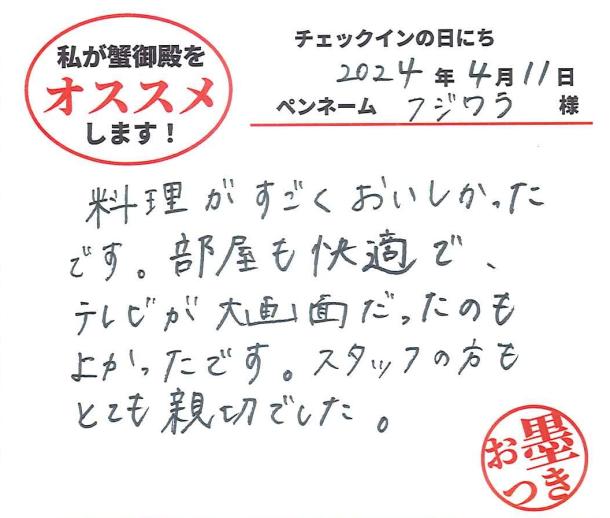 私が蟹御殿を
オススメ
します！
チェックインの日にち
2024年4月11日
ペンネーム フジワラ 様
料理がすごくおいしかった
です。部屋も快適で、
テレビが大画面だったのも
よかったです。スタッフの方も
とても親切でした。
お墨
つき